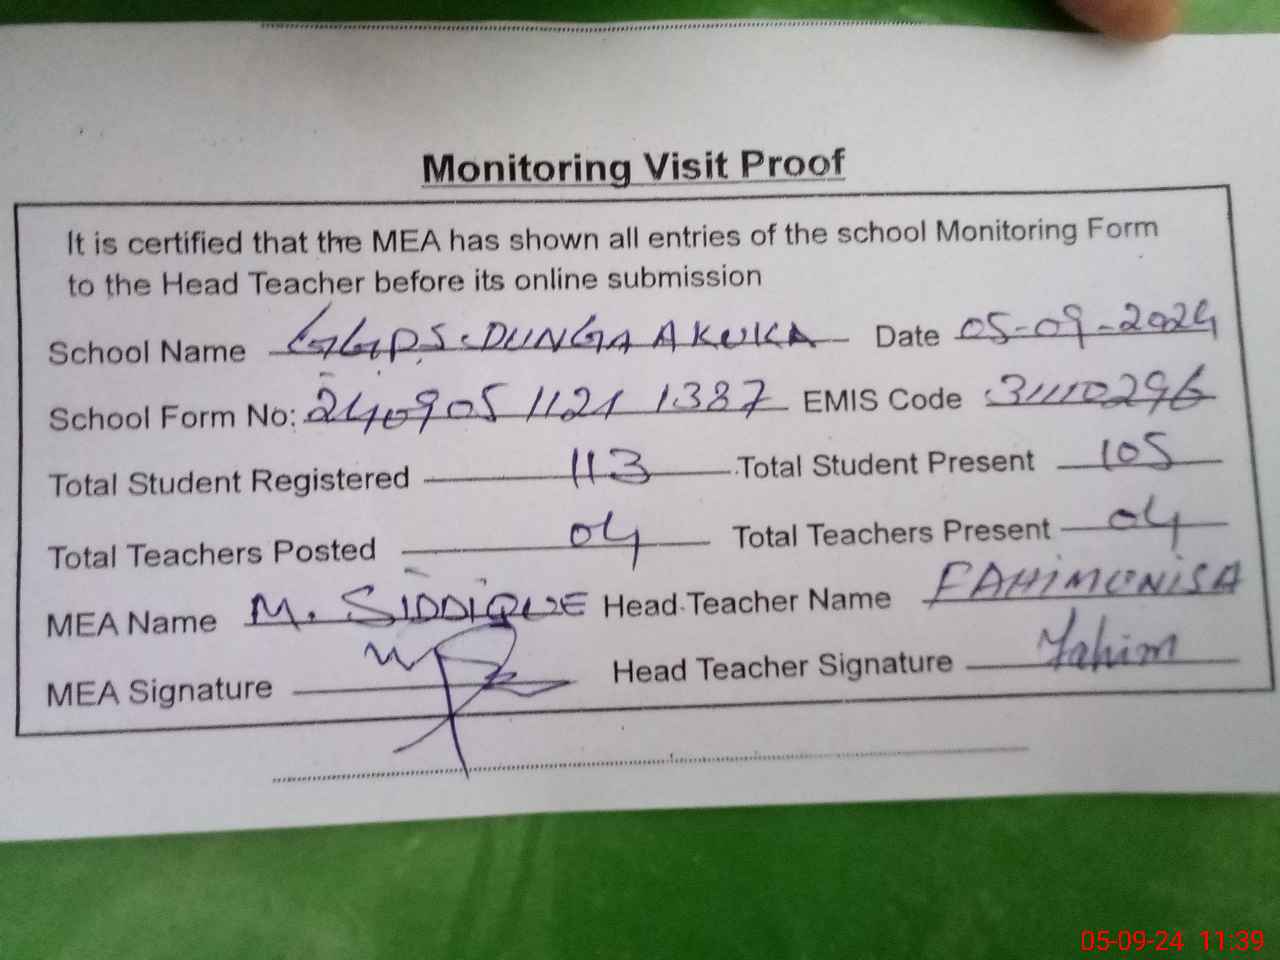 Monitoring Visit Proof
It is certified that the MEA has shown all entries of the school Monitoring Form
to the Head Teacher before its online submission
School Name GGPS. DUNGA AKUKA Date 05-09-2024
School Form No: 240905 1121 1387 EMIS Code 31110296
Total Student Registered 113 Total Student Present 105
Total Teachers Posted 04 Total Teachers Present 04
MEA Name M. SIDDIQUE Head Teacher Name FAHIMUNISA
MEA Signature Head Teacher Signature Fahim
05-09-24 11:39